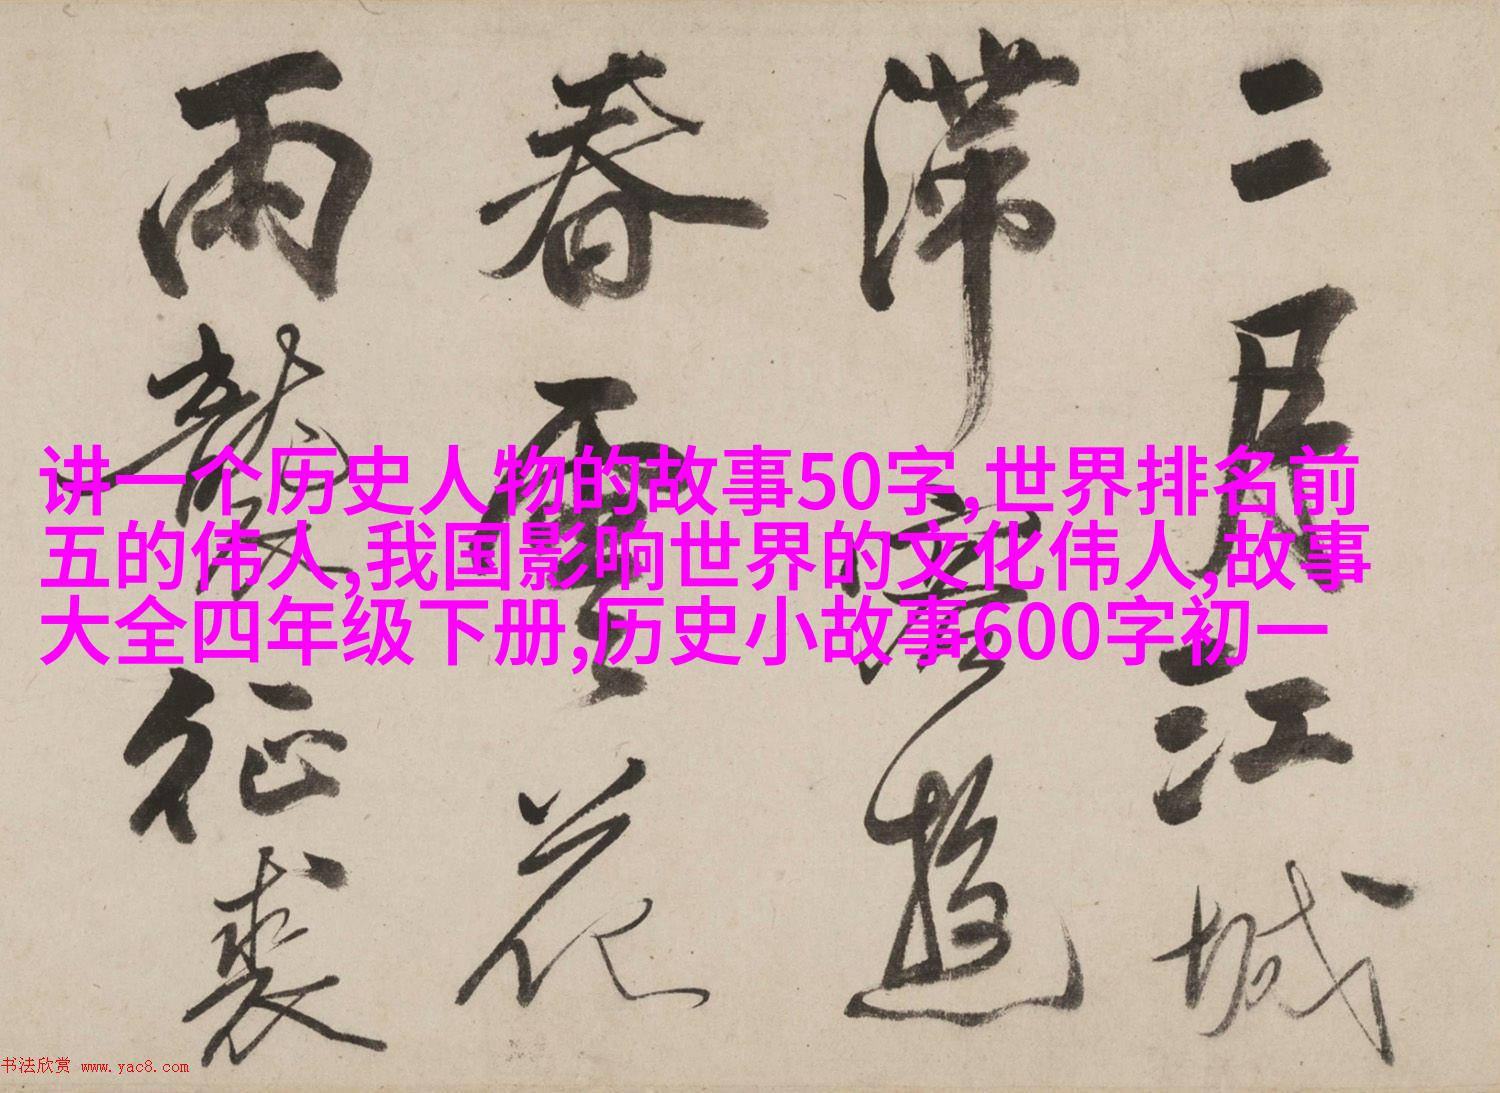 讲一个历史人物的故事50字,世界排名前
五的伟人,我国影响世界的文化伟人,故事
大全四年级下册,历史小故事600字初一
二月江城
滞遊
春花
征裘
书法欣赏 www.yac8.com